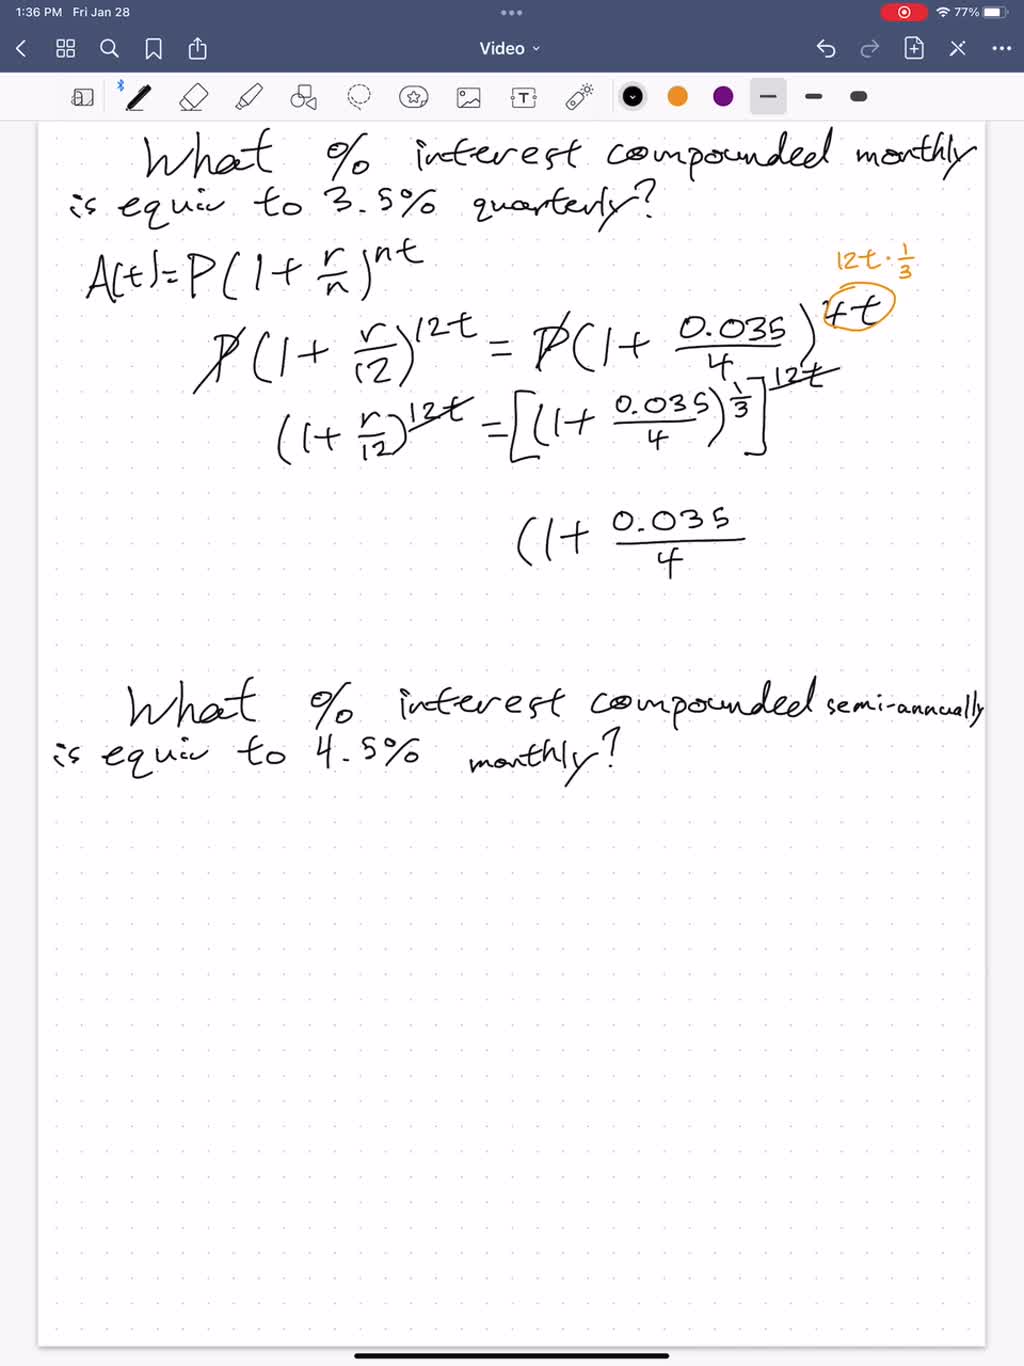 1:36 PM Fri Jan 28 77%
Video
T
What % interest compounded monthly
is equiv to 3.5% quarterly?
A(t)=P(1+r/n)^nt
12t·1/3
P(1+r/12)^12t = P(1+0.035/4)^4t
(1+r/12)^12t = [(1+0.035/4)^1/3]^12t
(1+0.035/4
What % interest compounded semi-annually
is equiv to 4.5% monthly?